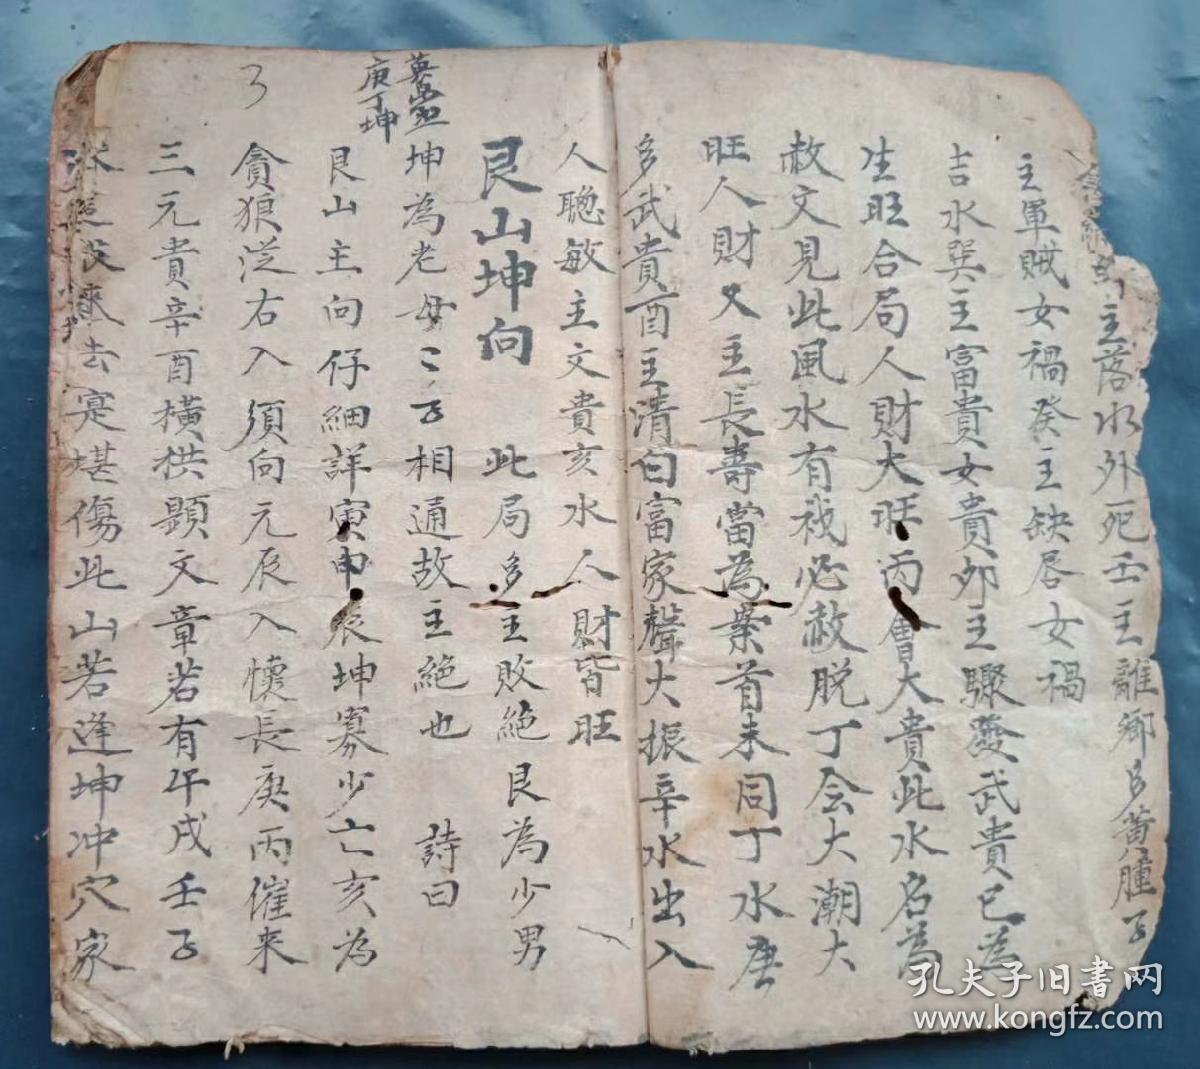 主落水外死壬主離鄉多黃腫子
主軍賊女禍癸主缺唇女禍
吉水巽主富貴女貴卯主驟發武貴巳為
生旺合局人財大旺丙會大貴此水名為
赦文見此風水有救必赦脱丁会大潮大
旺人財又主長壽當為案首未同丁水庚
多武貴酉主清白富家聲大振辛水出入
人聰敏主文貴亥水人財皆旺
艮山坤向 此局多主敗絕艮為少男
墓宅
庚丁坤
坤為老母 相通故主絕也 詩曰
艮山主向仔細詳寅申辰坤寡少亡亥為
貪狼从右入須向元辰入懷長庚丙催来
三元貴辛酉橫拱顯文章若有午戌壬子
去寔堪傷此山若逢坤冲穴家
3
孔夫子旧書网
www.kongfz.com